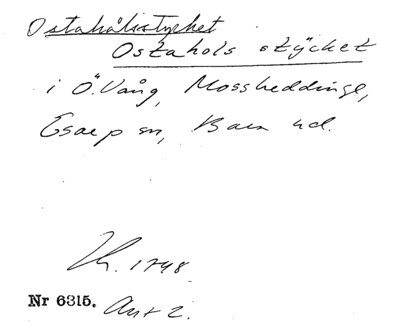 Ostahålsstycket
Ostahols stÿcket
i Ö. Vång, Mossheddinge,
Esarp sn, Bara hd.
Kh. 1748
Nr 6315. Akt 2.